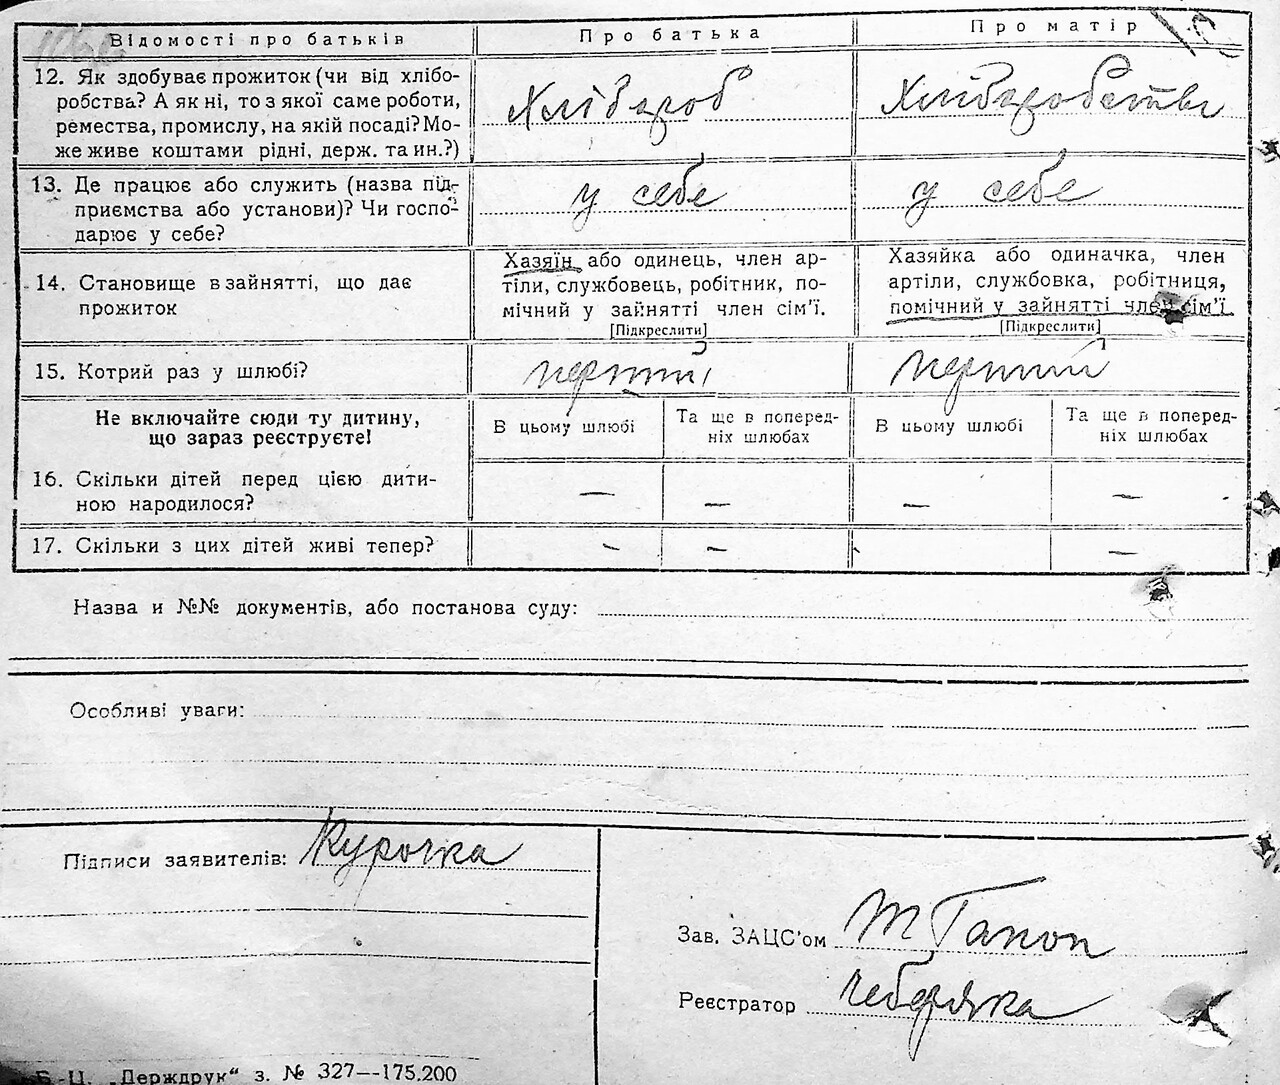 Відомості про батьків Про батька Про матір
12. Як здобуває прожиток (чи від хлібо-
робства? А як ні, то з якої саме роботи,
ремества, промислу, на якій посаді? Мо-
же живе коштами рідні, держ. та ин.?)
Хлібороб
Хліборобство
13. Де працює або служить (назва під-
приємства або установи)? Чи госпо-
дарює у себе?
у себе
у себе
14. Становище в зайнятті, що дає
прожиток
Хазяїн або одинець, член ар-
тіли, службовець, робітник, по-
мічний у зайнятті член сім'ї.
[Підкреслити]
Хазяйка або одиначка, член
артіли, службовка, робітниця,
помічний у зайнятті член сім'ї.
[Підкреслити]
15. Котрий раз у шлюбі?
перший
перший
Не включайте сюди ту дитину,
що зараз реєструєте!
В цьому шлюбі
Та ще в поперед-
ніх шлюбах
В цьому шлюбі
Та ще в поперед-
ніх шлюбах
16. Скільки дітей перед цією дити-
ною народилося?
— — — —
17. Скільки з цих дітей живі тепер?
– – —
Назва и №№ документів, або постанова суду:
Особливі уваги:
Підписи заявителів: Курочка
Зав. ЗАЦС'ом Гапон
Реєстратор Чеберяка
Б.-Ц. „Держдрук“ з. № 327—175.200